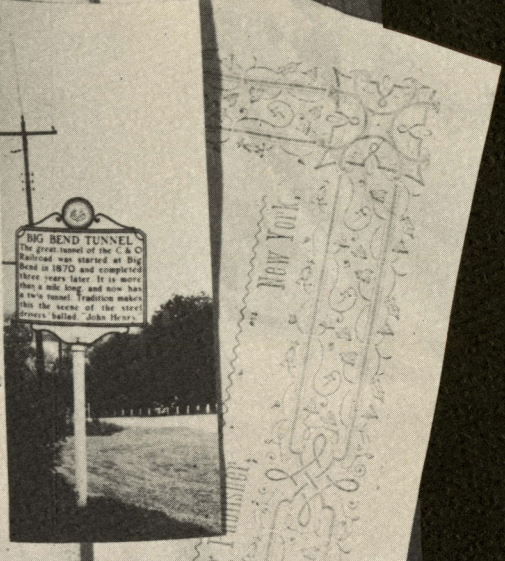 BIG BEND TUNNEL
The great tunnel of the C & O
Railroad was started at Big
Bend in 1870 and completed
three years later. It is more
than a mile long, and now has
a twin tunnel. Tradition makes
this the scene of the steel
drivers' ballad, "John Henry."
New York,